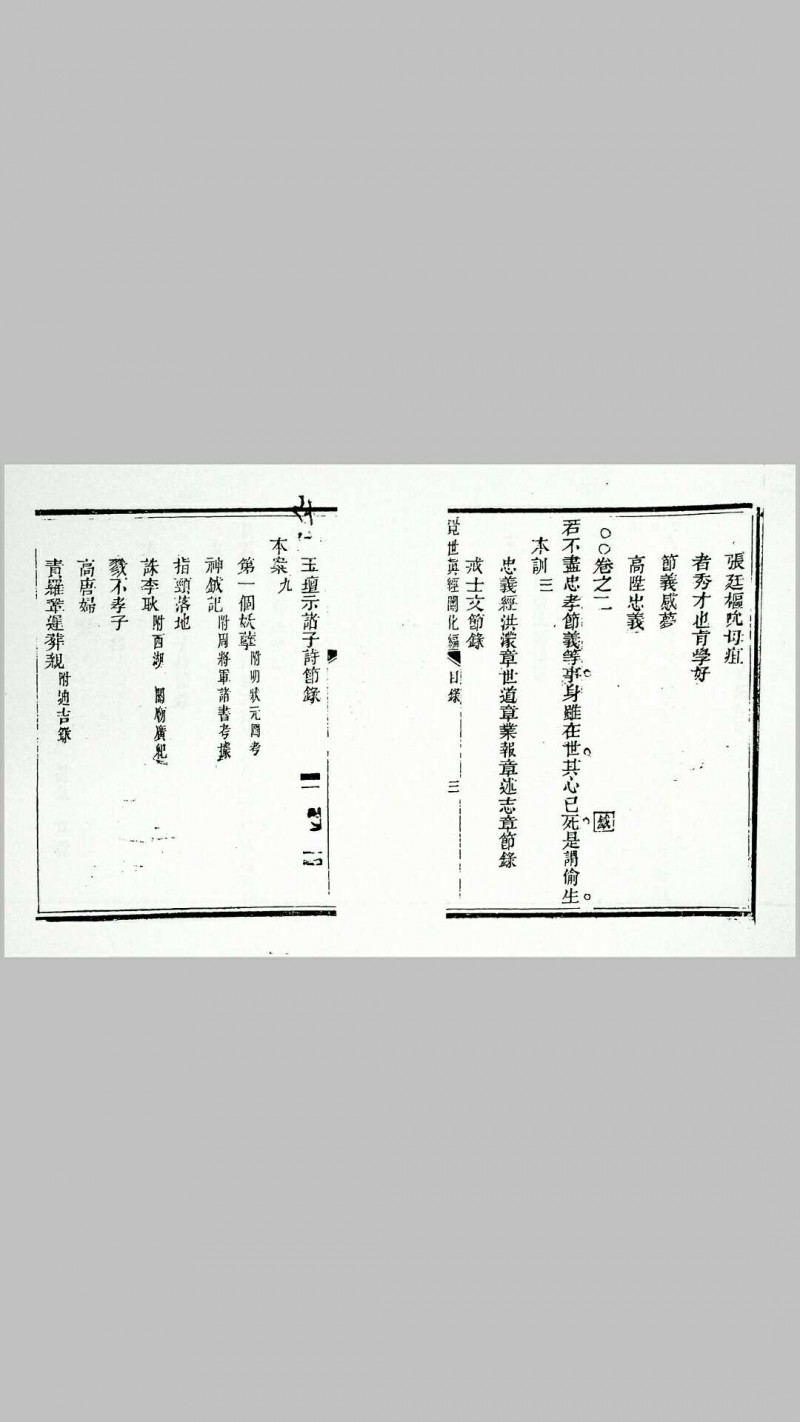 張廷樞吮母疽
者秀才也有學好
節義感夢
高陞忠義
○○卷之二
緘
若不盡忠孝節義等事身雖在世其心已死是謂偷生
本訓三
忠義經洪濛章世道章業報章述志章節錄
戒士文節錄
覺世眞經闡化編 目錄 三
玉壇示諸子詩節錄
本案九
第一個妖孽 附明狀元圖考
神鉞記 附周將軍諸書考據
指頸落地
誅李耿 附西湖 關廟廣紀
戮不孝子
高唐婦
青羅章運葬親 附迪吉錄